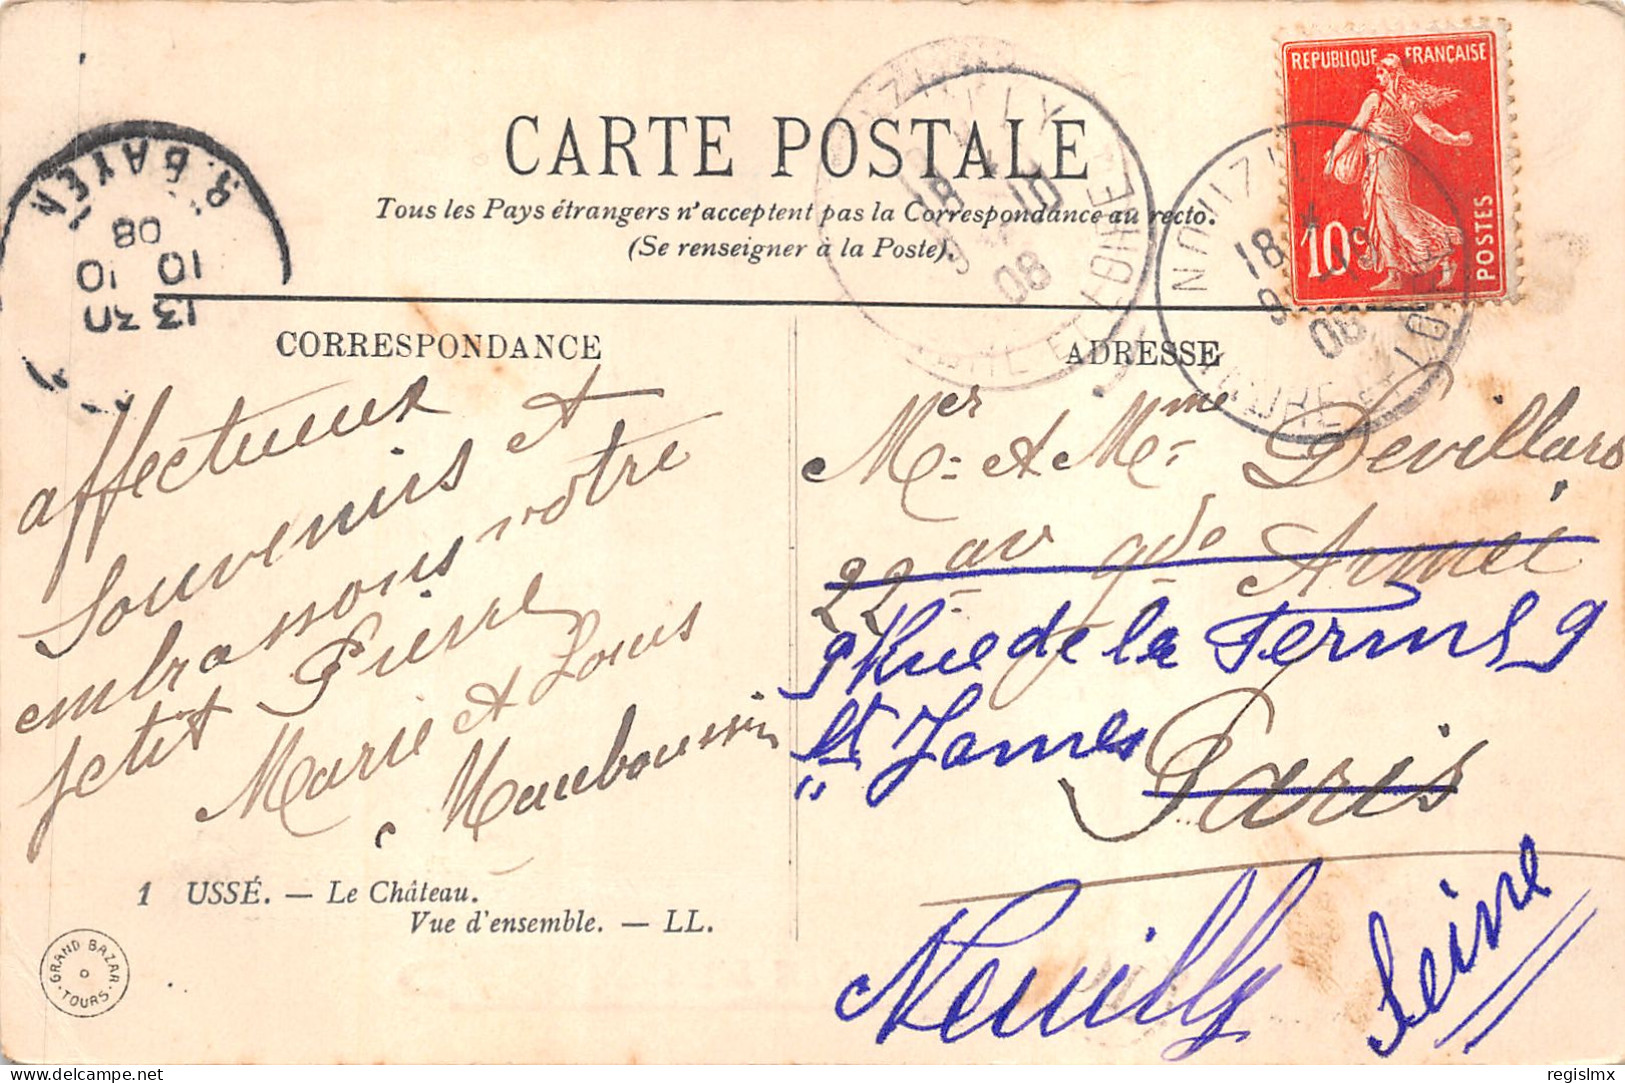 CARTE POSTALE
Tous les Pays étrangers n'acceptent pas la Correspondance au recto.
(Se renseigner à la Poste).
REPUBLIQUE FRANÇAISE
10c
POSTES
NOUIZILLY
18
9 - 10
08
INDRE ET LOIRE
R. BAYEN
13 30
10 10
08
CORRESPONDANCE
affectueux
souvenirs et
embrassons votre
petit Pierre
Marie et Louis
Mauboussin
1 USSÉ. — Le Château.
Vue d'ensemble. — LL.
GRAND BAZAR
TOURS
ADRESSE
Mr et Mme Devillars
22 av gde Armée
9 Rue de la Ferme 9
St James
Paris
Neuilly Seine